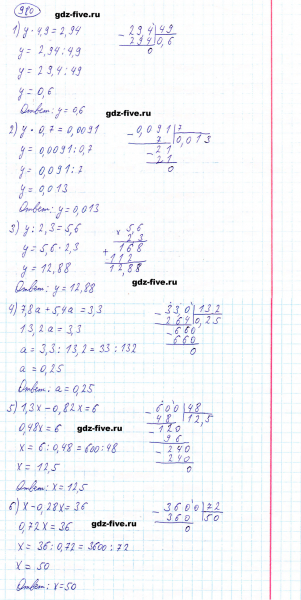 980
gdz-five.ru
1) y · 49 = 2,94
y = 2,94 : 49
y = 29,4 : 49
y = 0,6
Ответ: y = 0,6
- 29,4 | 49
29 4 | 0,6
0
gdz-five.ru
2) y · 0,7 = 0,0091
y = 0,0091 : 0,7
y = 0,091 : 7
y = 0,013
Ответ: y = 0,013
- 0,091 | 7
7 | 0,013
- 21
21
0
gdz-five.ru
3) y : 2,3 = 5,6
y = 5,6 · 2,3
y = 12,88
Ответ: y = 12,88
× 5,6
2,3
+ 168
112
12,88
gdz-five.ru
4) 7,8a + 5,4a = 3,3
13,2a = 3,3
a = 3,3 : 13,2 = 33 : 132
a = 0,25
Ответ: a = 0,25
- 330 | 132
264 | 0,25
- 660
660
0
gdz-five.ru
5) 1,3x - 0,82x = 6
0,48x = 6
x = 6 : 0,48 = 600 : 48
x = 12,5
Ответ: x = 12,5
- 600 | 48
48 | 12,5
- 120
96
- 240
240
0
gdz-five.ru
6) x - 0,28x = 36
0,72x = 36
x = 36 : 0,72 = 3600 : 72
x = 50
Ответ: x = 50
- 3600 | 72
360 | 50
0
gdz-five.ru